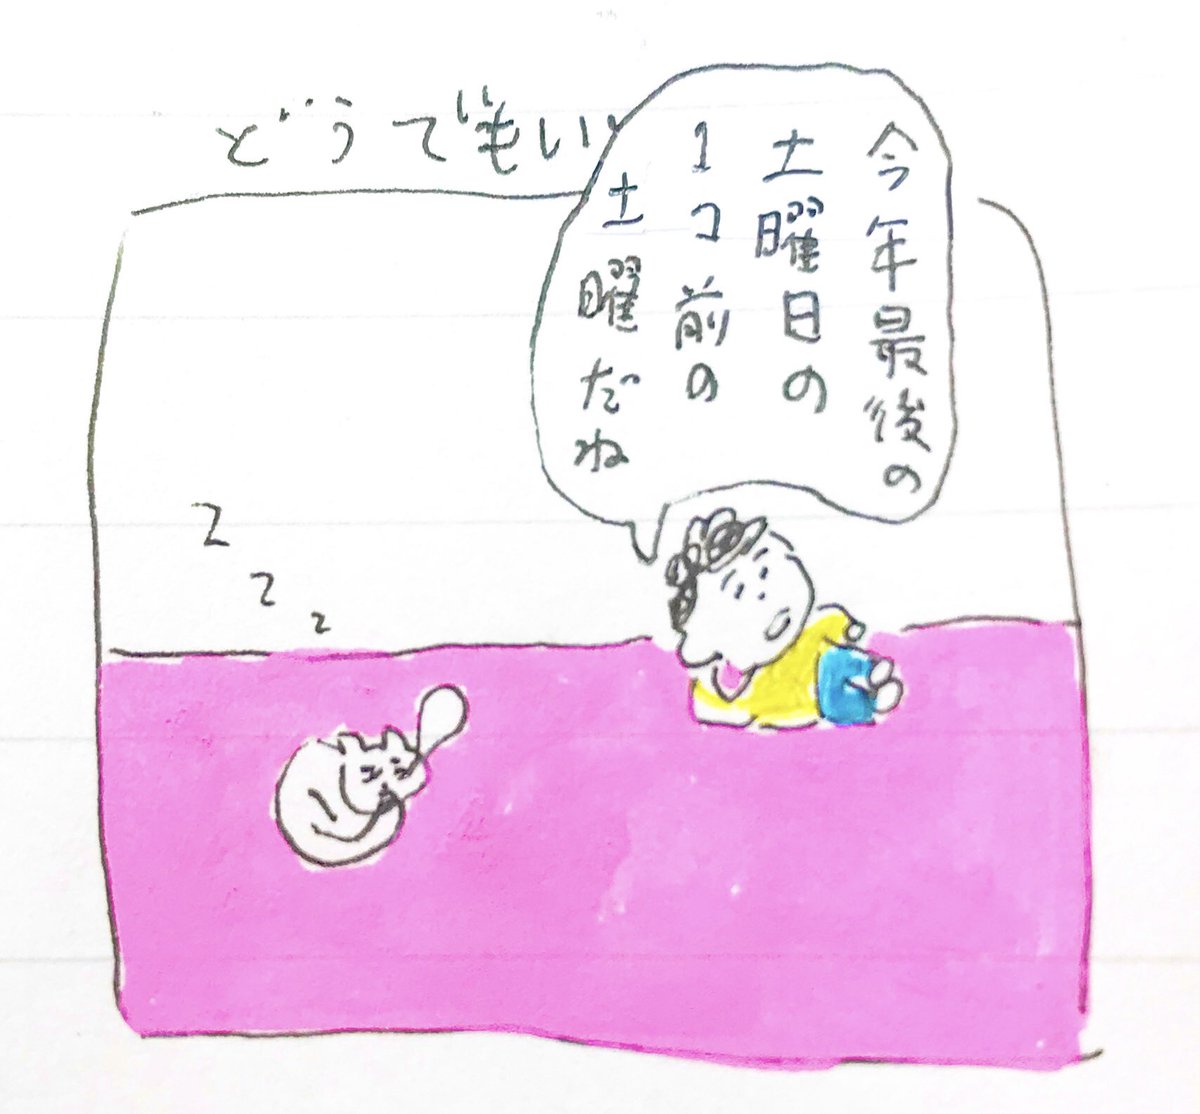 どうでもいい
今年最後の
土曜日の
1コ前の
土曜だね
z
z
z